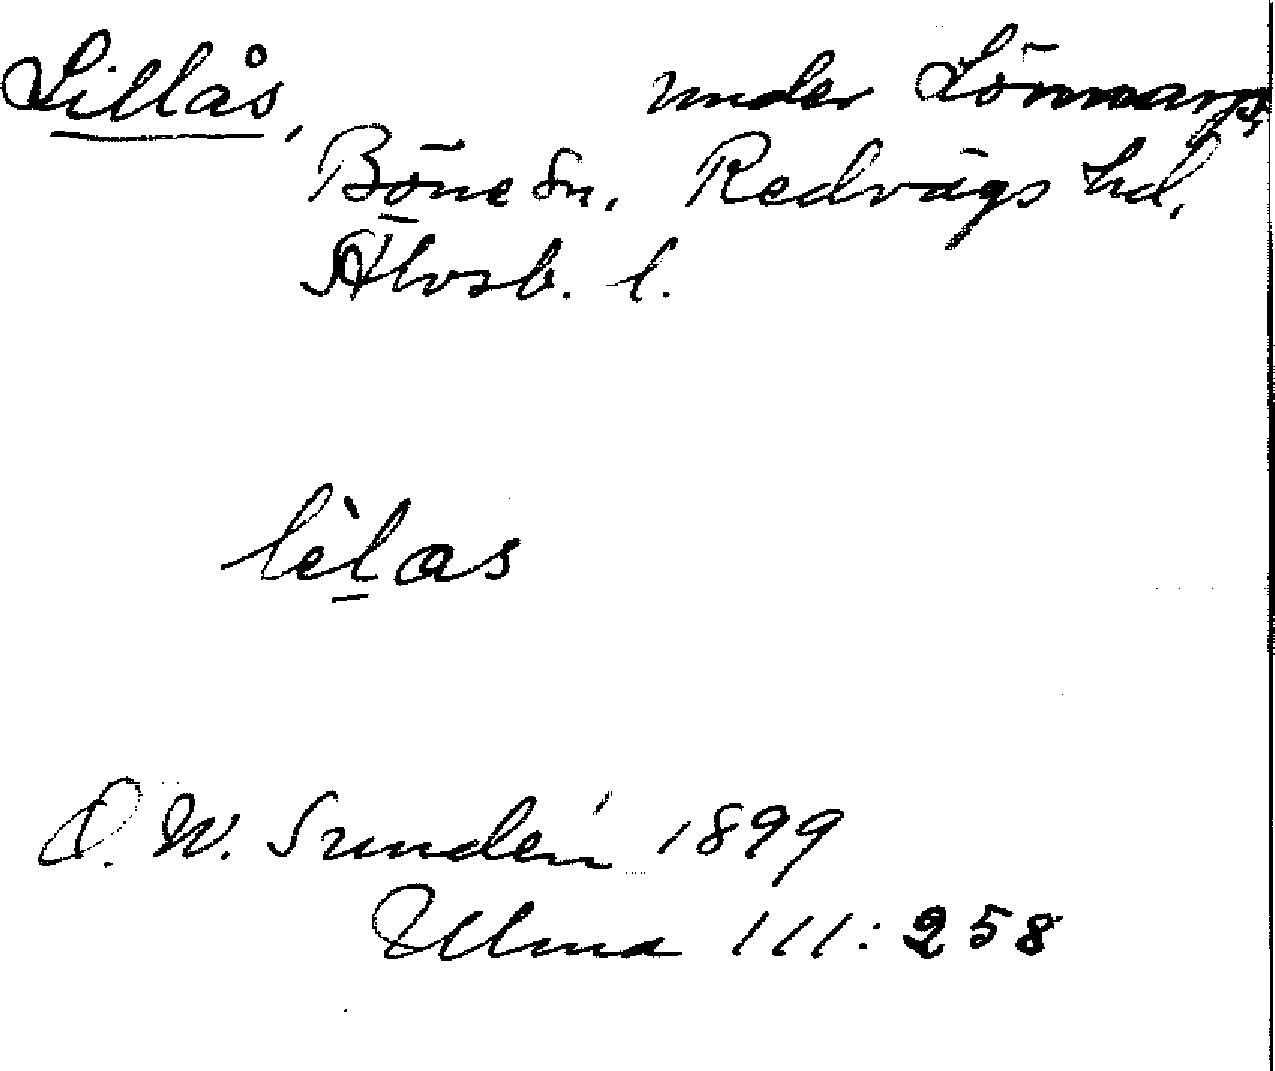 Lillås, under Lönnarp,
Böne sn. Redvägs hd.
Älvsb. l.
lèlas
D. W. Sundén 1899
Ulma 111:258